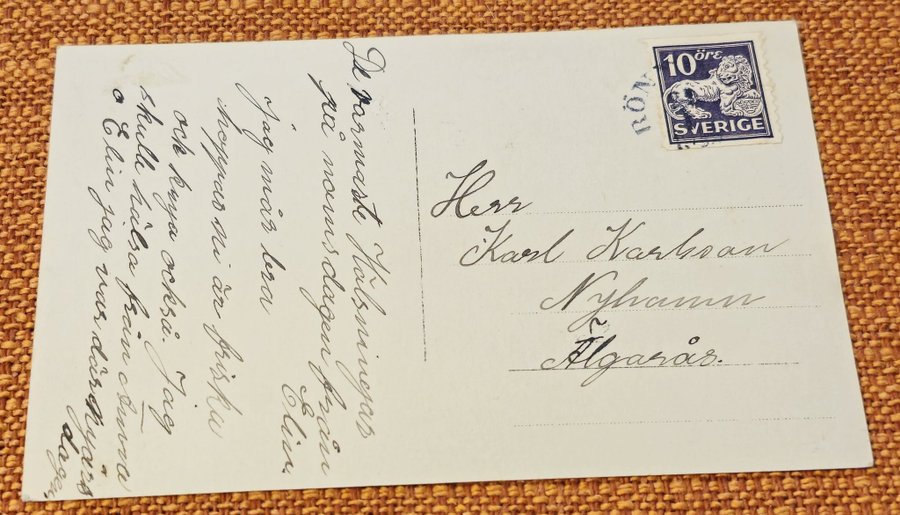 De varmaste Hälsningar
på namnsdagen från
Elin.
Jag mår bra
hoppas ni är friska
och krya också. Jag
skulle hälsa från Anna
o Elin jag var där Nyårs
dagen,
RÖN
10 ÖRE
SVERIGE
Herr
Karl Karlsson
Nyhamn
Älgarås.